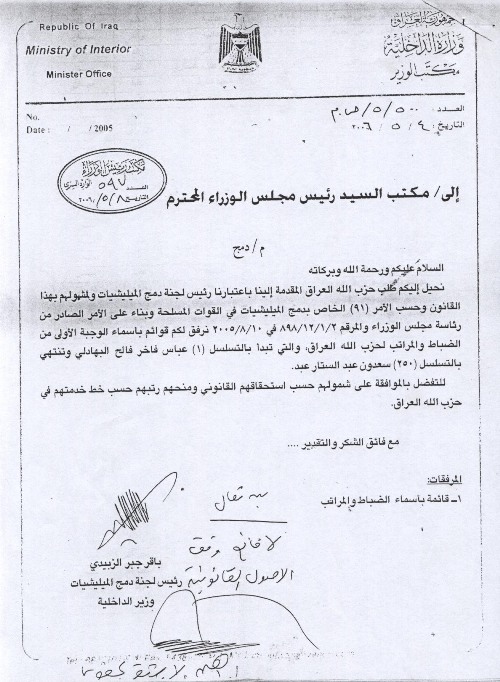 Republic Of Iraq
Ministry of Interior
Minister Office
جمهورية العراق
وزارة الداخلية
مكتب الوزير
No.
Date : / / 2005
العدد :
التاريخ : ٤ / ٥ / ٢٠٠٦
مكتب رئيس الوزراء
العدد ٥٩٧
التاريخ ٢٠٠٦/٥/٨
إلى / مكتب السيد رئيس مجلس الوزراء المحترم
م/ دمج
السلام عليكم ورحمة الله وبركاته
نحيل إليكم طلب حزب الله العراق المقدمة إلينا باعتبارنا رئيس لجنة دمج الميليشيات ولشمولهم بهذا
القانون وحسب الأمر (٩١) الخاص بدمج الميليشيات في القوات المسلحة وبناء على الأمر الصادر من
رئاسة مجلس الوزراء والمرقم ٨٩٨/١٢/١/٢ في ٢٠٠٥/٨/١٠ نرفق لكم قوائم باسماء الوجبة الأولى من
الضباط والمراتب لحزب الله العراق، والتي تبدأ بالتسلسل (١) عباس فاخر فالح البهادلي وتنتهي
بالتسلسل (٢٥٠) سعدون عبد الستار عبد.
للتفضل بالموافقة على شمولهم حسب استحقاقهم القانوني ومنحهم رتبهم حسب خط خدمتهم في
حزب الله العراق.
مع فائق الشكر والتقدير ....
المرفقات:
١ـ قائمة بأسماء الضباط والمراتب
لا مانع وفق
الاصول القانونية
باقر جبر الزبيدي
رئيس لجنة دمج الميليشيات
وزير الداخلية